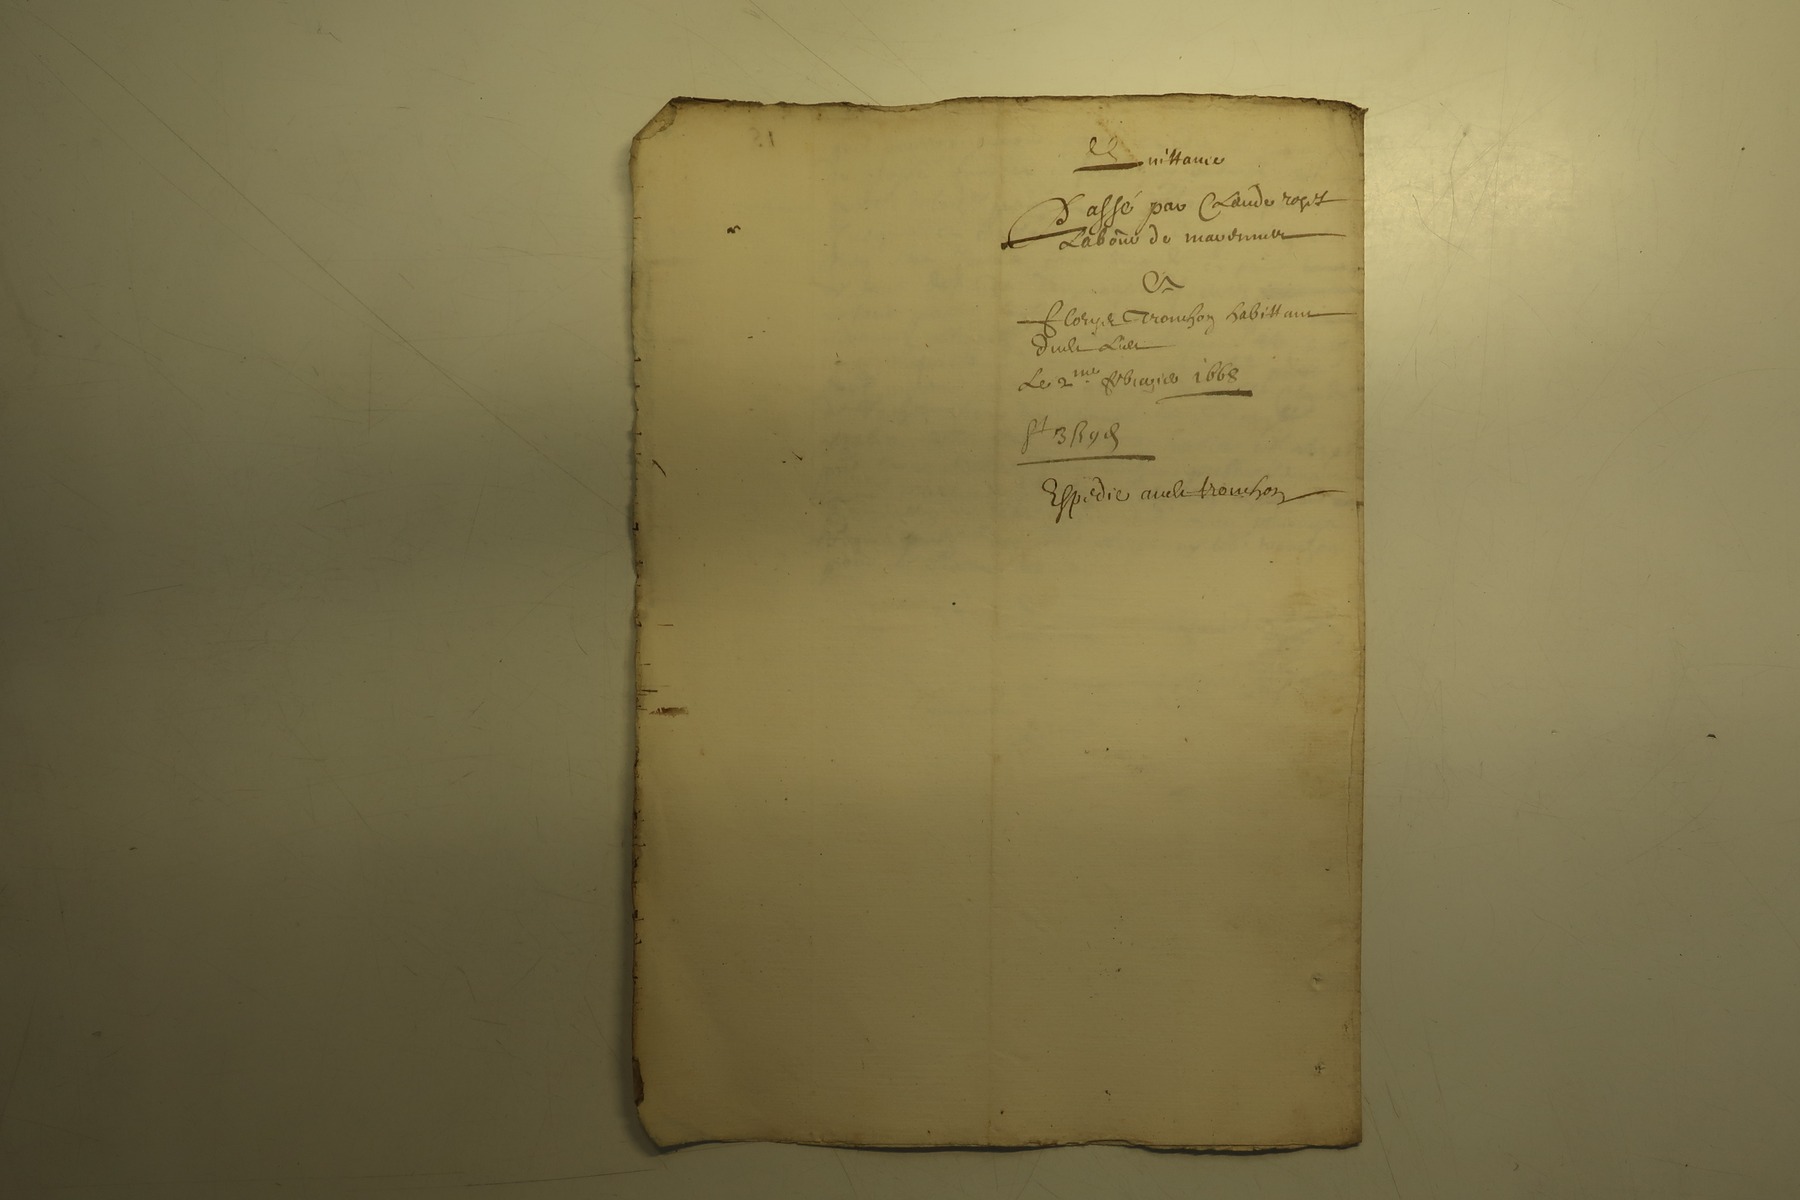 Quittance
Passé par Claude roget
Labour de
A
Tronchon habittant
dud Lieu
Le 2me febvrier 1668
Expedie aud tronchon